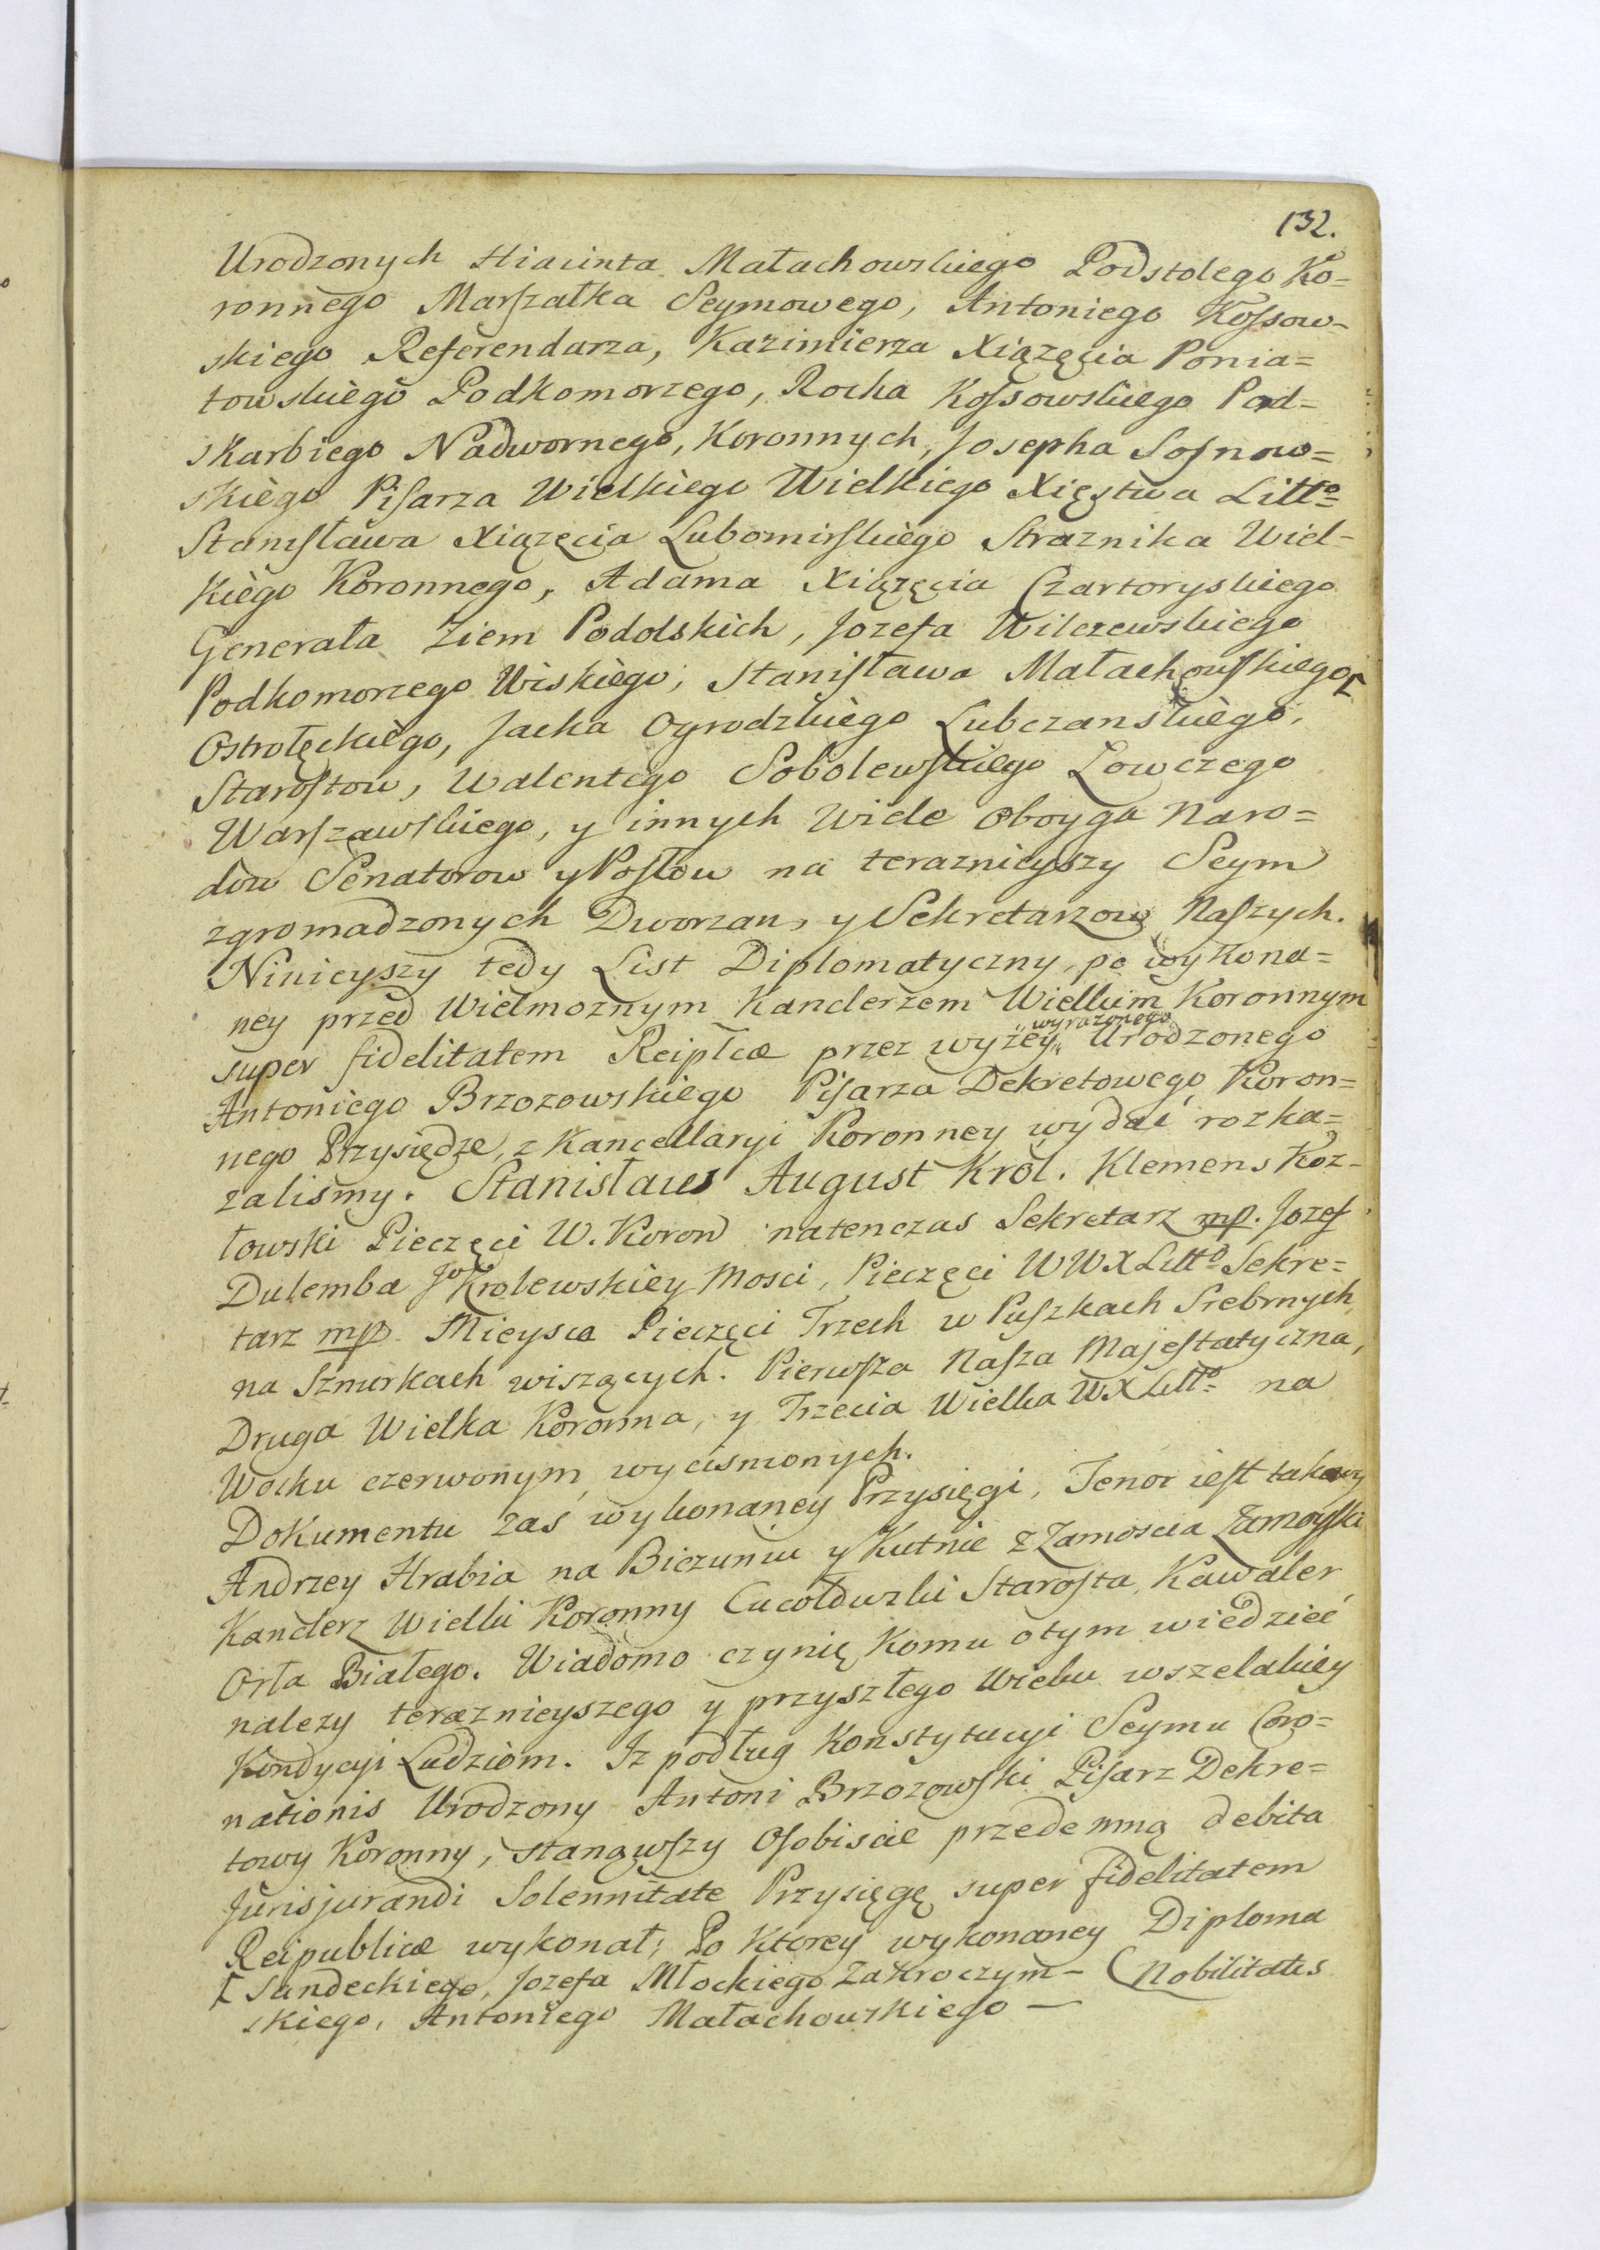 132.
Urodzonych Hiacinta Małachowskiego Podstolego Ko=
ronnego Marszałka Seymowego, Antoniego Kossow-
skiego Referendarza, Kazimierza Xiązęcia Ponia=
towskiego Podkomorzego, Rocha Kossowskiego Pod-
skarbiego Nadwornego, Koronnych, Josepha Sosnow=
skiego Pisarza Wielkiego Wielkiego Xięstwa Litto=
Stanisława Xiązęcia Lubomirskiego Straznika Wiel-
kiego Koronnego, Adama Xiązęcia Czartoryskiego
Generała Ziem Podolskich, Jozefa Wilczewskiego
Podkomorzego Wiskiego, Stanisława Małachowskiego [
Ostrołęckiego, Jacka Ogrodzkiego Lubczanskiego,
Starostow, Walentego Sobolewskiego Łowczego
Warszawskiego, y innych Wiele oboyga Naro=
dow Senatorow y Posłow na teraznieyszy Seym
zgromadzonych Dworzan, y Sekretarzow Naszych.
Ninieyszy tedy List Diplomatyczny, po wykona=
ney przed Wielmoznym Kanclerzem Wielkim Koronnym
super fidelitatem Reiplcæ przez wyzey "wyrazonego" Urodzonego
Antoniego Brzozowskiego Pisarza Dekretowego Koron=
nego Przysiędze, z Kancellaryi Koronney wydać rozka=
zalismy. Stanisław August Krol. Klemens Koz-
łowski Pieczęci W. Koron natenczas Sekretarz mp. Jozef
Dulemba Jo Krolewskiey Mosci, Pieczęci WWX Litto Sekre=
tarz mp Mieysca Pieczęci Trzech w Puszkach Srebrnych,
na Sznurkach wiszących. Pierwsza Nasza Majestatyczna,
Druga Wielka Koronna, y Trzecia Wielka WX Litto= na
Wosku czerwonym wycisnionych.
Dokumentu zaś wykonaney Przysięgi, Tenor iest takowy
Andrzey Hrabia na Biezuniu y Kutnie z Zamoscia Zamoyski
Kanclerz Wielki Koronny Starosta, Kawaler
Orła Białego. Wiadomo czynię Komu o tym wiedzieć
nalezy teraznieyszego y przyszłego Wieku wszelakiey
Kondycyi Ludziom. Iz podług Konstytucyi Seymu Coro=
nationis Urodzony Antoni Brzozowski Pisarz Dekre=
towy Koronny, stanąwszy Osobiscie przedemną debita
Jurisjurandi Solennitate Przysięgę super fidelitatem
Reipublicæ wykonał; Po Ktorey wykonaney Diploma
[ Sandeckiego, Jozefa Młockiego Zakroczym- (Nobilitatis
skiego, Antoniego Małachowskiego —